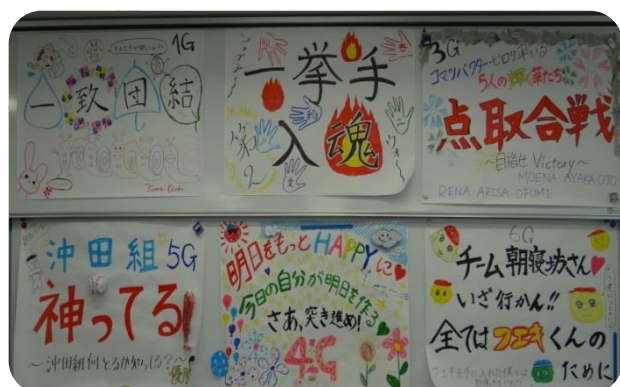 1G
一致団結
一挙手
入魂
3G
5人の輝く華たち
点取合戦
～目指せ Victory～
MOENA AYAKA OTO
RENA ARISA OFUMI
沖田組 5G
神ってる
～沖田組何とるか知ってる？～
優勝
明日をもっとHAPPYに
今日の自分が明日を作る
さあ、突き進め！
4G
6G
チーム朝寝坊さん
いざ行かん!!
全てはフエキくんの
ために